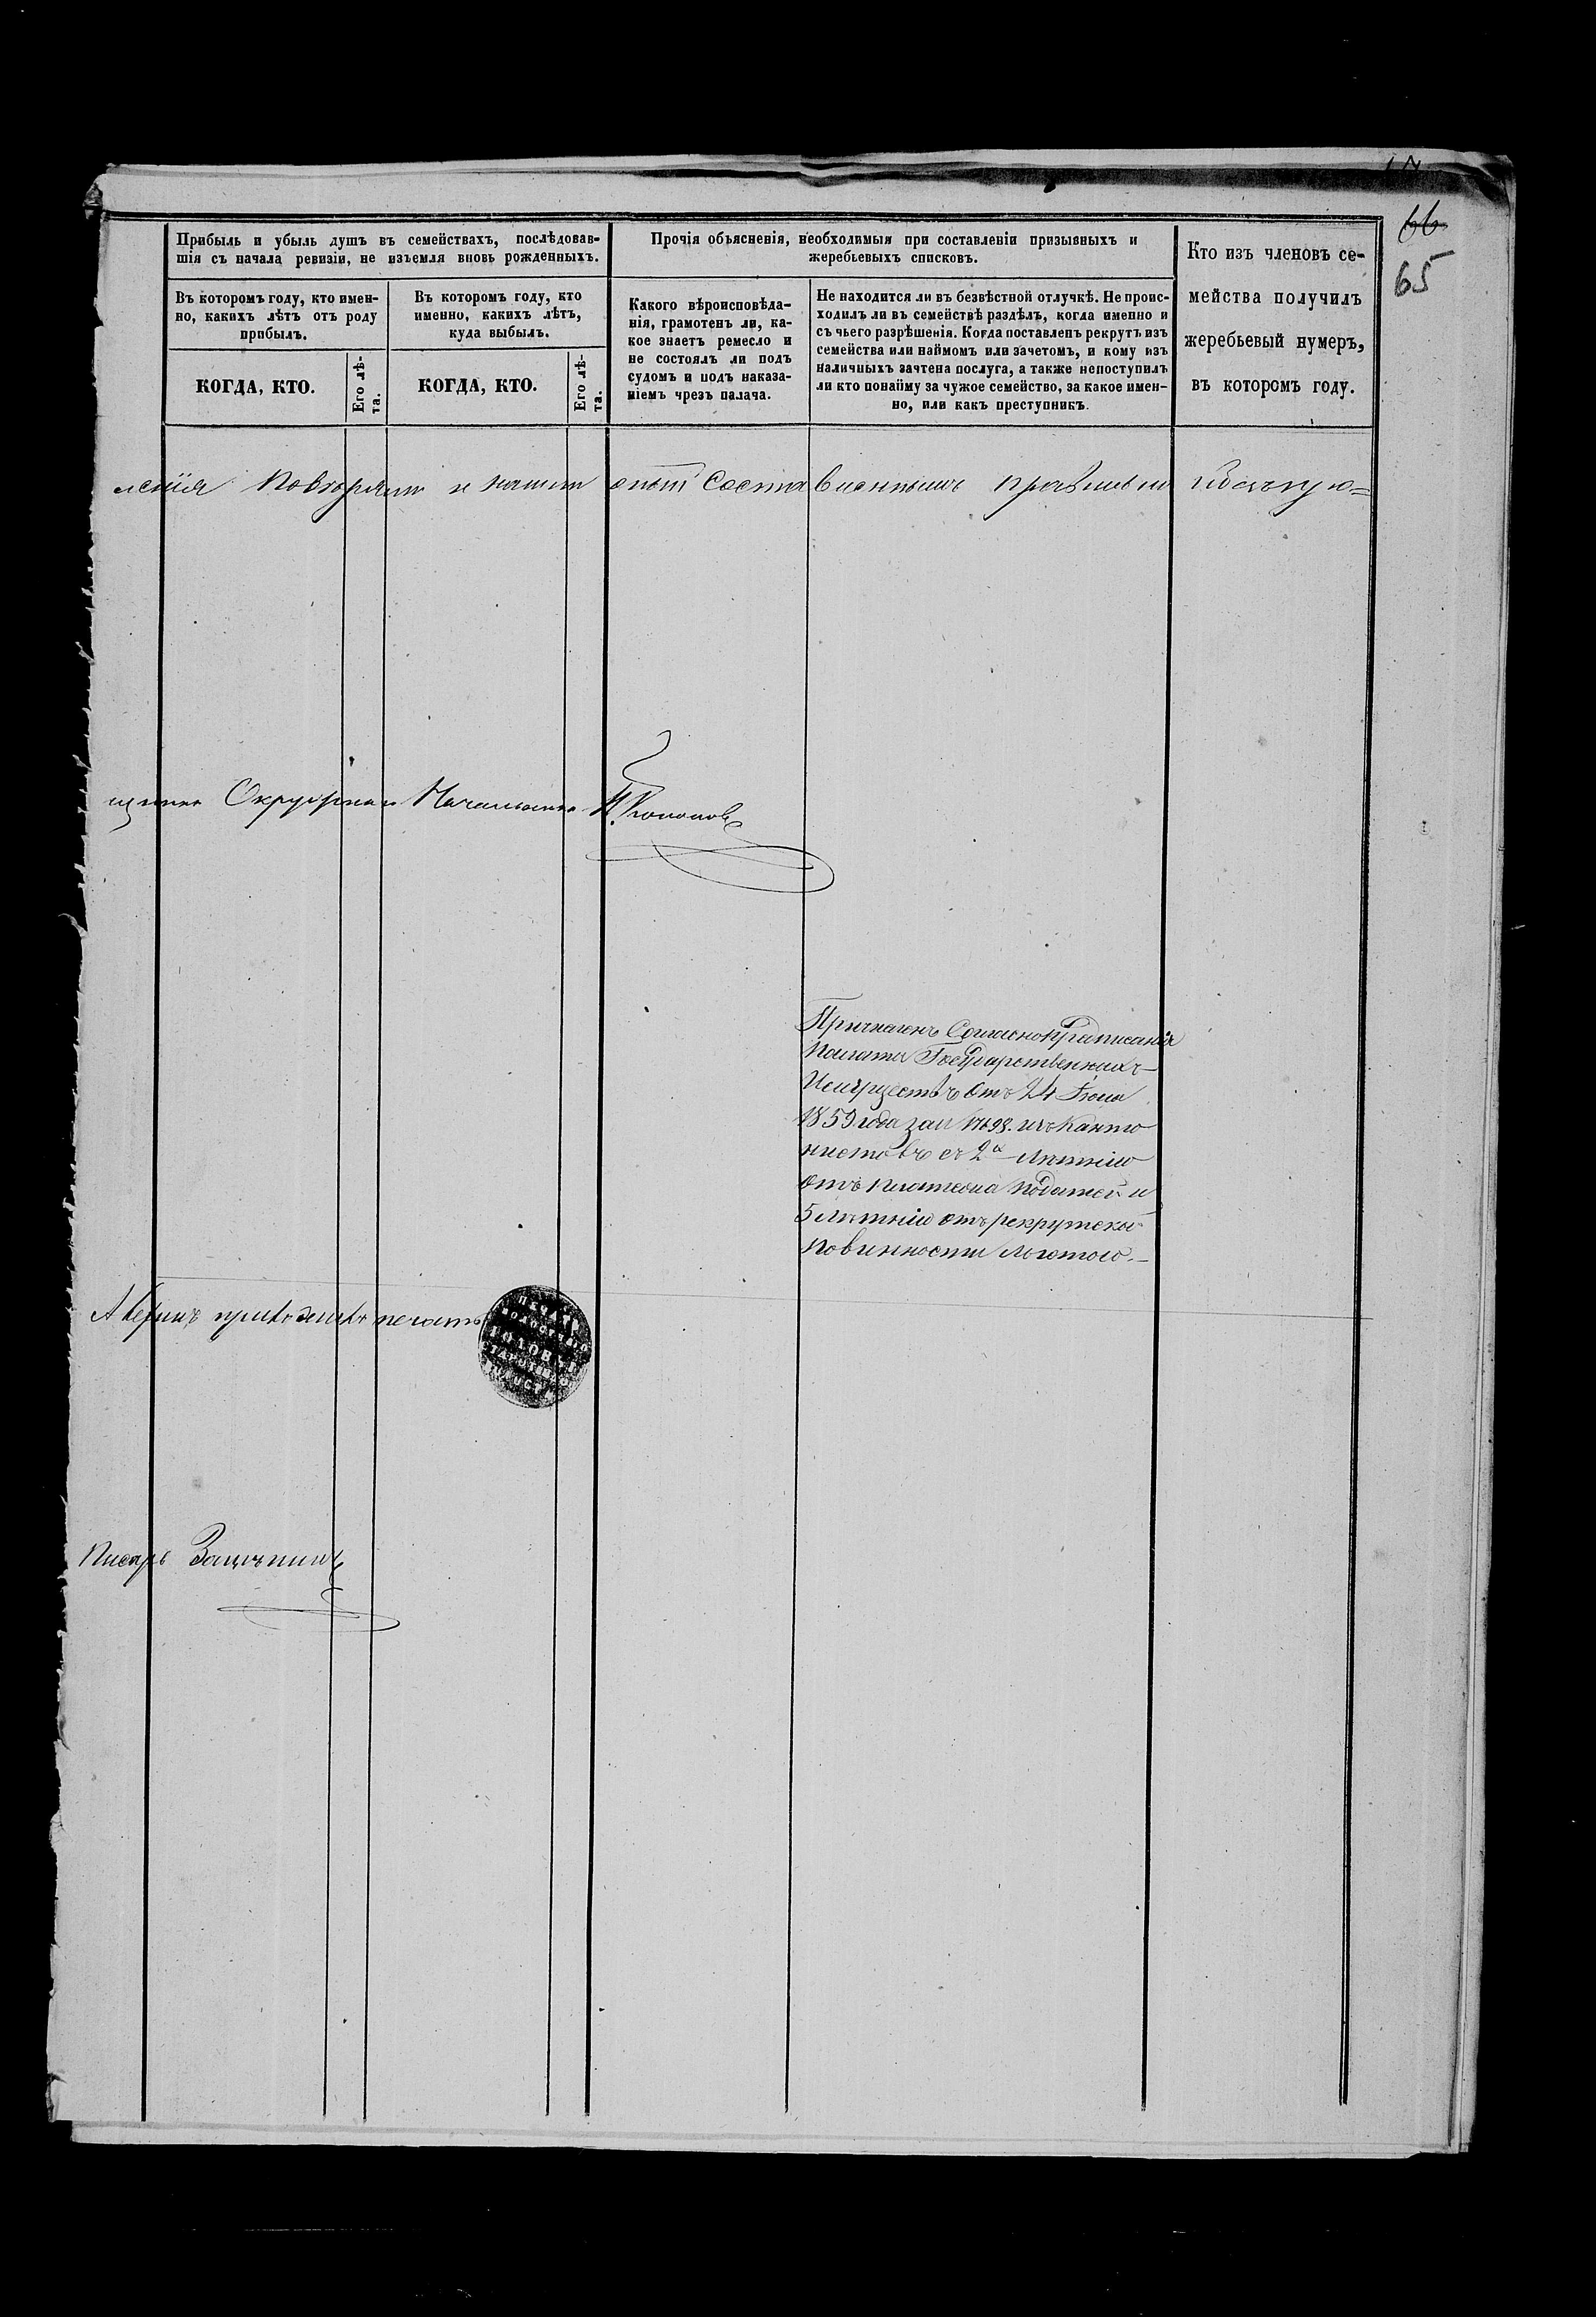 66
65
Прибыль и убыль душъ въ семействахъ, послѣдовав-
шія съ начала ревизіи, не изъемля вновь рожденныхъ.
Въ которомъ году, кто имен-
но, какихъ лѣтъ отъ роду
прибылъ.
КОГДА, КТО.
Его лѣ-
та.
Въ которомъ году, кто
именно, какихъ лѣтъ,
куда выбылъ.
КОГДА, КТО.
Его лѣ-
та.
Прочія объясненія, необходимыя при составленіи призывныхъ и
жеребьевыхъ списковъ.
Какого вѣроисповѣда-
нія, грамотенъ ли, ка-
кое знаетъ ремесло и
не состоялъ ли подъ
судомъ и подъ наказа-
ніемъ чрезъ палача.
Не находится ли въ безвѣстной отлучкѣ. Не проис-
ходилъ ли въ семействѣ раздѣлъ, когда именно и
съ чьего разрѣшенія. Когда поставленъ рекрутъ изъ
семейства или наймомъ или зачетомъ, и кому изъ
наличныхъ зачтена послуга, а также непоступилъ
ли кто понайму за чужое семейство, за какое имен-
но, или какъ преступникъ.
Кто изъ членовъ се-
мейства получилъ
жеребьевый нумеръ,
въ которомъ году.
ленія и составленнымъ правильно
Окружнаго Начальника Кononовъ
Причисленъ Согласно предписанія
Палаты Государственныхъ
Имуществъ отъ 24 Іюня
1859 года за № 17698. изъ Канто
нистовъ съ 2х Лѣтнію
отъ платежа податей и
5 Лѣтнію отъ рекрутской
повинности льготою.
Аверинъ приложилъ печать
ПЕЧАТЬ
ВОЛОСТНАГО
ГОЛОВЫ
Писарь